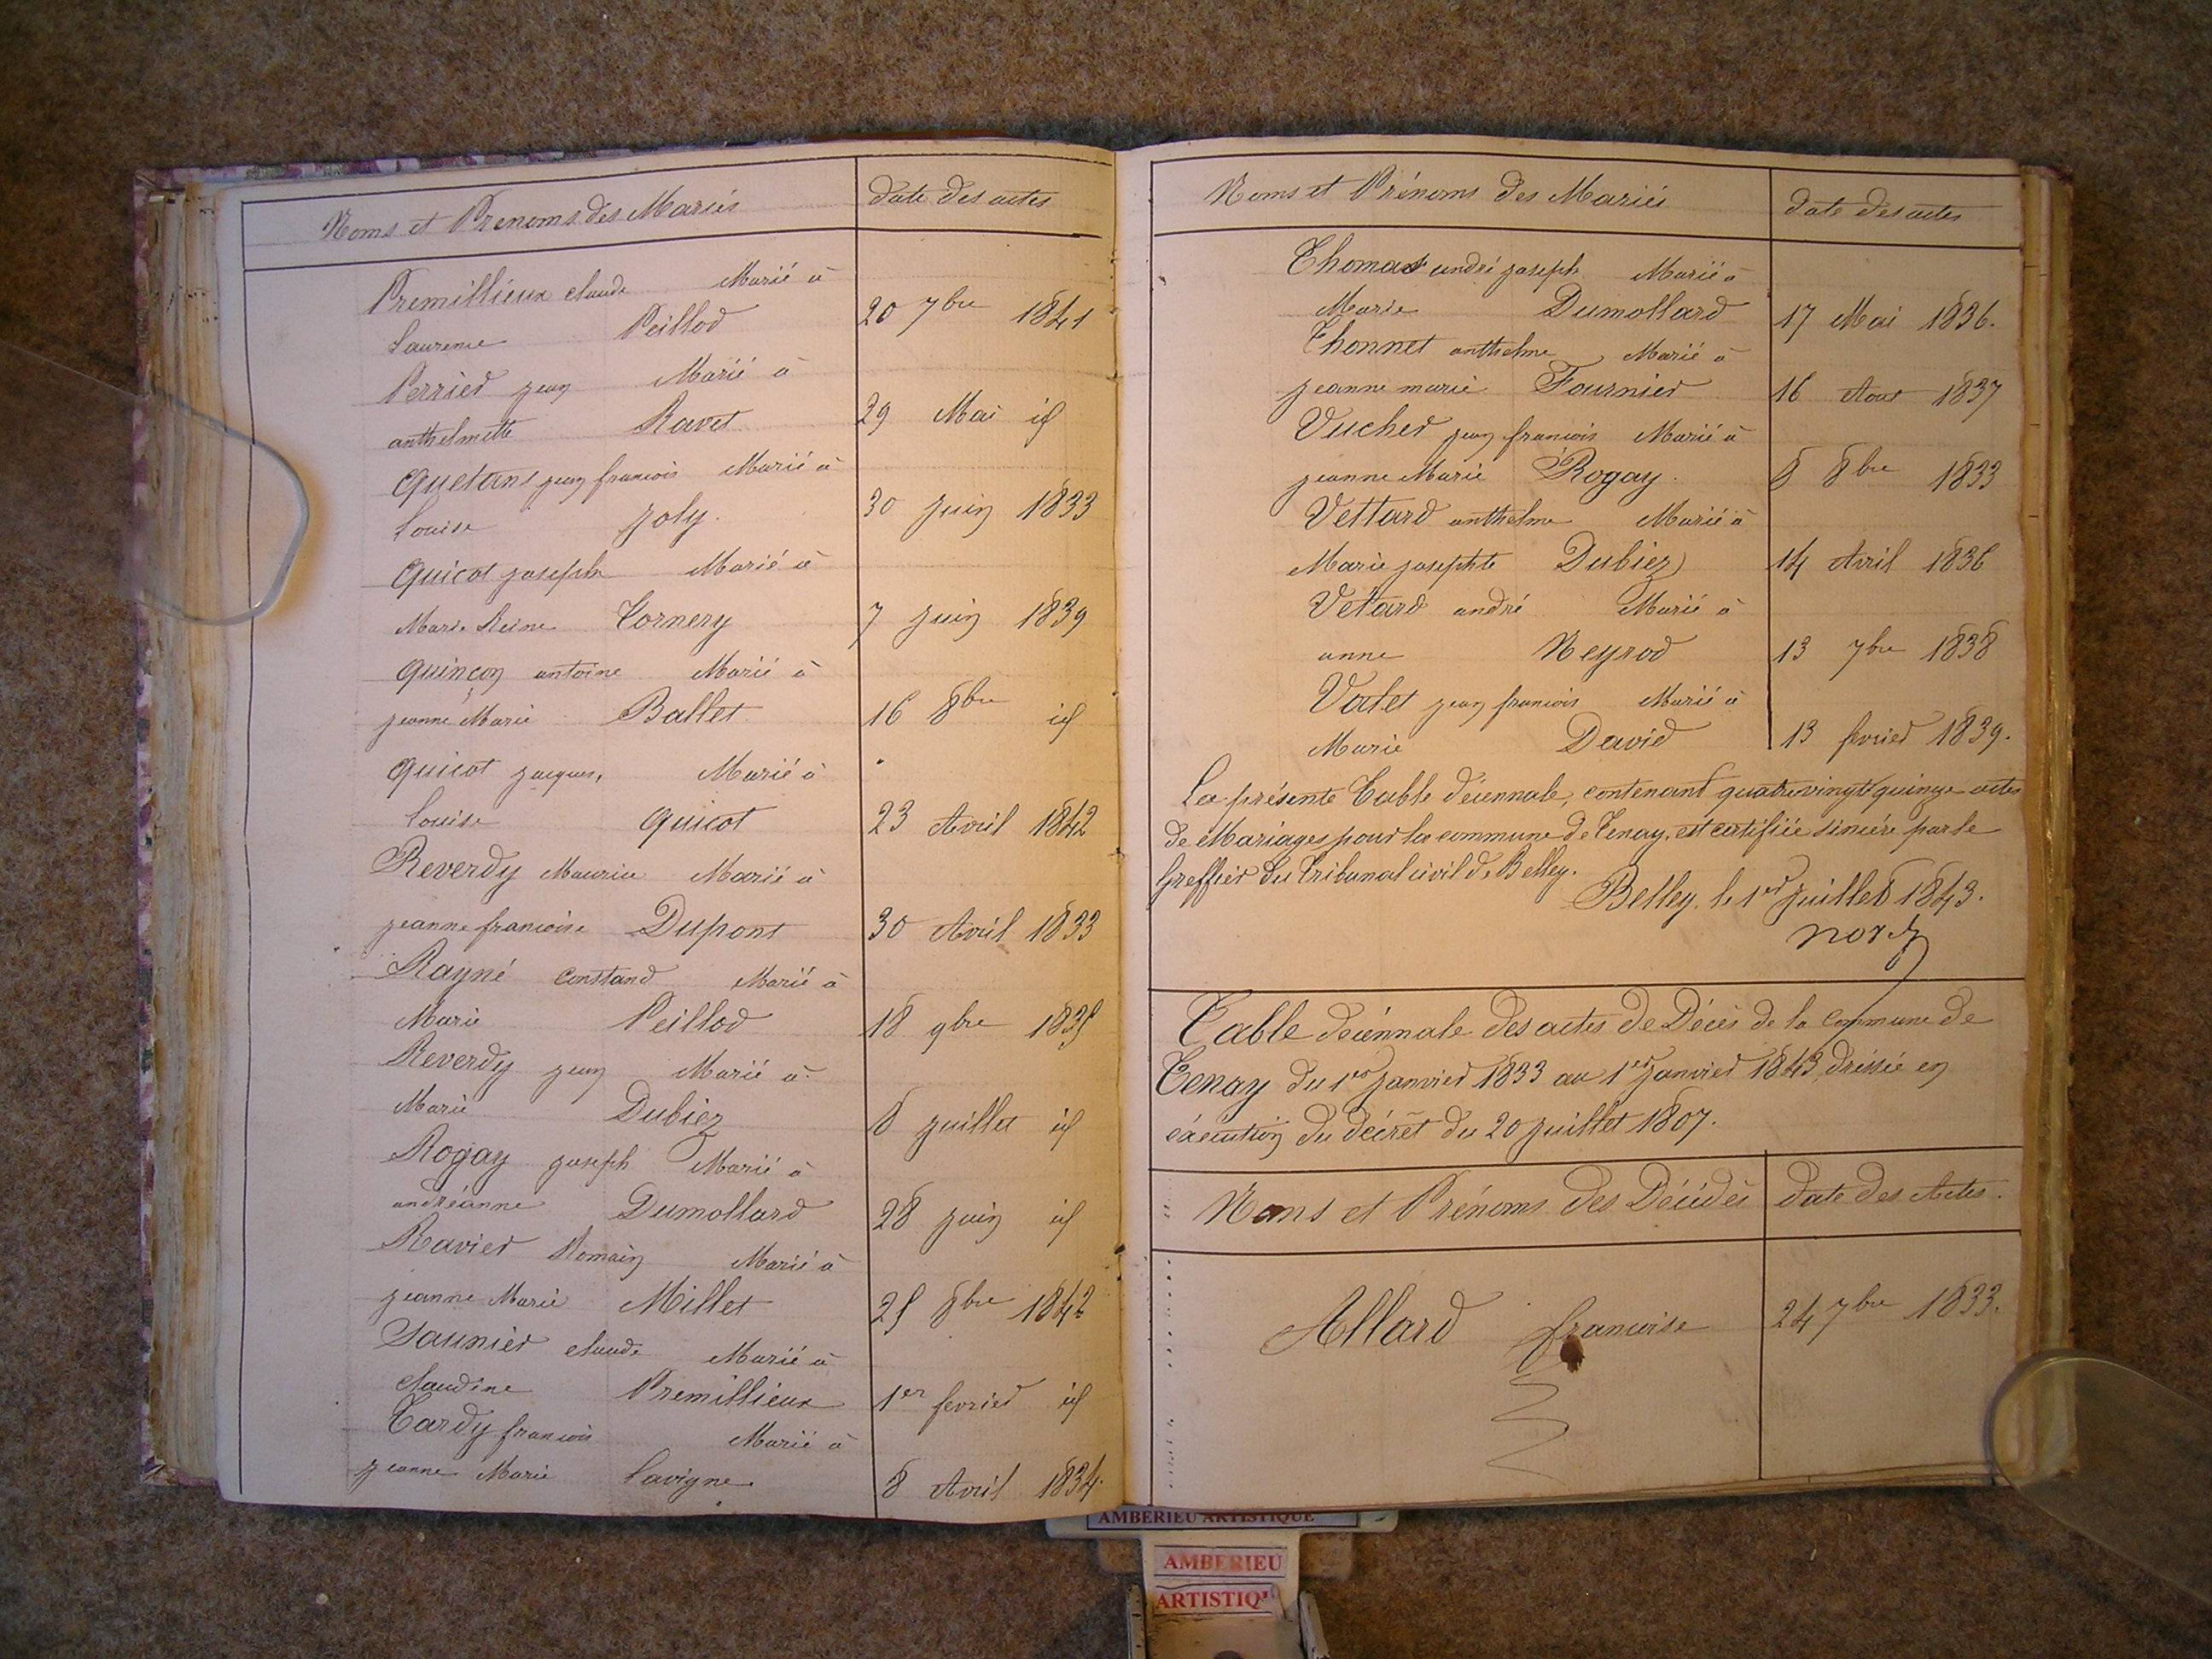 Noms et Prenoms des Mariés date des actes
Premillieux claude Marié à
Laurence Peillod 20 7bre 1841
Perrier jean Marié à
anthelmette Ravet 29 Mai id
Quetans jean francois Marié à
Louise Joly. 30 juin 1833
Quicot joseph Marié à
Marie Reine Cornery 7 juin 1839
Quinçon antoine Marié à
jeanne Marie Ballet 16 8bre id
Quicot jacques, Marié à
Louise Quicot 23 Avril 1842
Reverdy Maurice Marié à
jeanne francoise Dupont 30 Avril 1833
Rayné Constand Marié à
Marie Peillod 18 9bre 1835
Reverdy jean Marié à
Marie Dubiez 8 juillet id
Rogay joseph Marié à
andréanne Dumollard 28 juin id
Ravier Romain Marié à
jeanne Marie Millet 25 8bre 1842
Saunier claude Marié à
claudine Premillieux 1er fevrier id
Tardy francois Marié à
jeanne Marie Lavigne 8 Avril 1834.
Noms et Prénoms des Mariés date des actes
Thomas andré joseph Marié à
Marie Dumollard 17 Mai 1836.
Thonnet anthelme Marié à
jeanne marie Fournier 16 Aout 1837
Vucher jean francois Marié à
jeanne Marie Rogay. 8 8bre 1833
Vettard anthelme Marié à
Marie josephte Dubiez 14 Avril 1836
Vétard andré Marié à
anne Neyrod 13 7bre 1838
Valet jean francois Marié à
Marie David 13 fevrier 1839.
La présente Table décennale, contenant quatrevingt quinze actes
de Mariages pour la commune de Tenay, est certifiée sincére par le
Greffier du Tribunal civil de Belley.
Belley, le 1er juillet 1843.
Table décénnale des actes de Décès de la Commune de
Tenay du 1er Janvier 1833 au 1er janvier 1843, dréssée en
éxécution du décrêt du 20 juillet 1807.
Noms et Prénoms des Décédés date des Actes.
Allard francoise 24 7bre 1833.
AMBERIEU ARTISTIQUE
AMBERIEU
ARTISTIQU